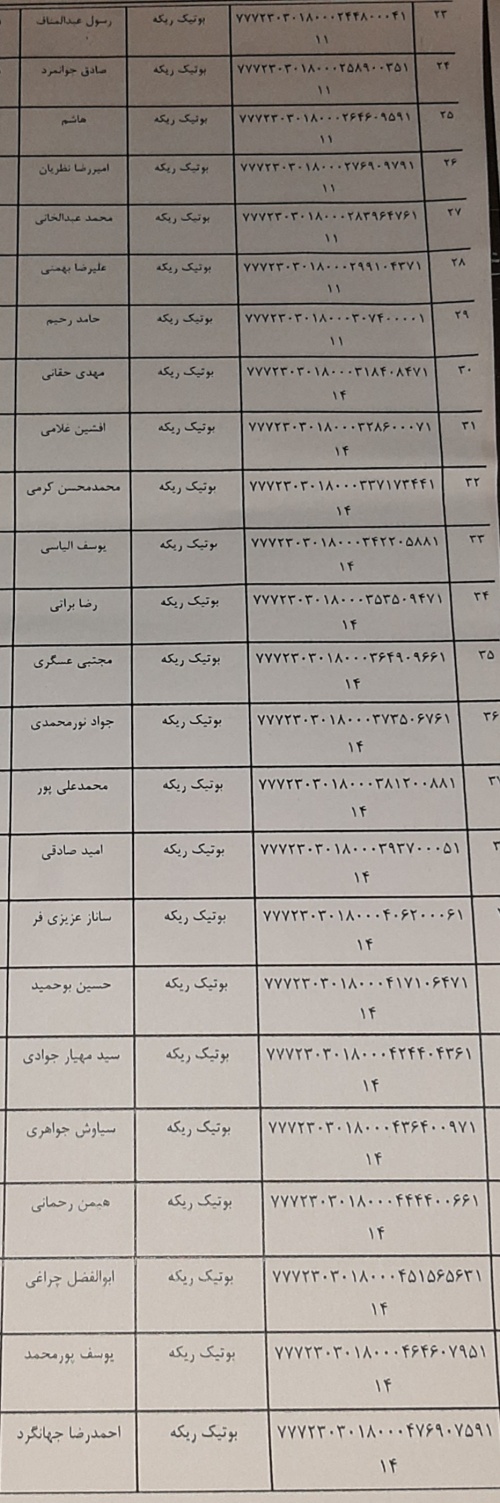 ۲۳ ۷۷۷۲۳۰۳۰۱۸۰۰۰۲۴۴۸۰۰۰۴۱ بوتیک ریکه رسول عبدالمناف
۱۱
۲۴ ۷۷۷۲۳۰۳۰۱۸۰۰۰۲۵۸۹۰۰۳۵۱ بوتیک ریکه صادق جوانمرد
۱۱
۲۵ ۷۷۷۲۳۰۳۰۱۸۰۰۰۲۶۴۶۰۹۵۹۱ بوتیک ریکه هاشم
۱۱
۲۶ ۷۷۷۲۳۰۳۰۱۸۰۰۰۲۷۶۹۰۹۷۹۱ بوتیک ریکه امیررضا نظریان
۱۱
۲۷ ۷۷۷۲۳۰۳۰۱۸۰۰۰۲۸۳۹۶۴۷۶۱ بوتیک ریکه محمد عبدالخانی
۱۱
۲۸ ۷۷۷۲۳۰۳۰۱۸۰۰۰۲۹۹۱۰۴۳۷۱ بوتیک ریکه علیرضا بهمنی
۱۱
۲۹ ۷۷۷۲۳۰۳۰۱۸۰۰۰۳۰۷۴۰۰۰۰۱ بوتیک ریکه حامد رحیم
۱۱
۳۰ ۷۷۷۲۳۰۳۰۱۸۰۰۰۳۱۸۴۰۸۴۷۱ بوتیک ریکه مهدی حقانی
۱۴
۳۱ ۷۷۷۲۳۰۳۰۱۸۰۰۰۳۲۸۶۰۰۰۷۱ بوتیک ریکه افشین غلامی
۱۴
۳۲ ۷۷۷۲۳۰۳۰۱۸۰۰۰۳۳۷۱۷۳۴۴۱ بوتیک ریکه محمدمحسن کرمی
۱۴
۳۳ ۷۷۷۲۳۰۳۰۱۸۰۰۰۳۴۲۲۰۵۸۸۱ بوتیک ریکه یوسف الیاسی
۱۴
۳۴ ۷۷۷۲۳۰۳۰۱۸۰۰۰۳۵۳۵۰۹۴۷۱ بوتیک ریکه رضا براتی
۱۴
۳۵ ۷۷۷۲۳۰۳۰۱۸۰۰۰۳۶۴۹۰۹۶۶۱ بوتیک ریکه مجتبی عسگری
۱۴
۳۶ ۷۷۷۲۳۰۳۰۱۸۰۰۰۳۷۳۵۰۶۷۶۱ بوتیک ریکه جواد نورمحمدی
۱۴
۷۷۷۲۳۰۳۰۱۸۰۰۰۳۸۱۲۰۰۸۸۱ بوتیک ریکه محمدعلی پور
۱۴
۷۷۷۲۳۰۳۰۱۸۰۰۰۳۹۳۷۰۰۰۵۱ بوتیک ریکه امید صادقی
۱۴
۷۷۷۲۳۰۳۰۱۸۰۰۰۴۰۶۲۰۰۰۶۱ بوتیک ریکه ساناز عزیزی فر
۱۴
۷۷۷۲۳۰۳۰۱۸۰۰۰۴۱۷۱۰۶۴۷۱ بوتیک ریکه حسین بوحمید
۱۴
۷۷۷۲۳۰۳۰۱۸۰۰۰۴۲۴۴۰۴۳۶۱ بوتیک ریکه سید مهیار جوادی
۱۴
۷۷۷۲۳۰۳۰۱۸۰۰۰۴۳۶۴۰۰۹۷۱ بوتیک ریکه سیاوش جواهری
۱۴
۷۷۷۲۳۰۳۰۱۸۰۰۰۴۴۴۴۰۰۶۶۱ بوتیک ریکه هیمن رحمانی
۱۴
۷۷۷۲۳۰۳۰۱۸۰۰۰۴۵۱۵۶۵۶۳۱ بوتیک ریکه ابوالفضل چراغی
۱۴
۷۷۷۲۳۰۳۰۱۸۰۰۰۴۶۴۶۰۷۹۵۱ بوتیک ریکه یوسف پورمحمد
۱۴
۷۷۷۲۳۰۳۰۱۸۰۰۰۴۷۶۹۰۷۵۹۱ بوتیک ریکه احمدرضا جهانگرد
۱۴